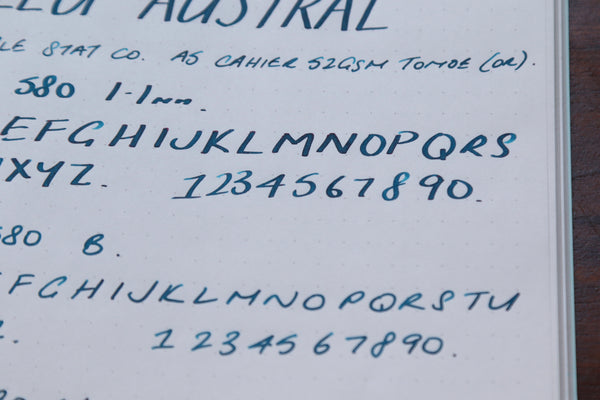 AUSTRAL
LE STAT CO. A5 CAHIER 52GSM TOMOE (OR).
580 1.1mm.
EFGHIJKLMNOPQRS
XYZ. 1234567890.
80 B.
FGHIJKLMNOPQRSTU
1234567890.